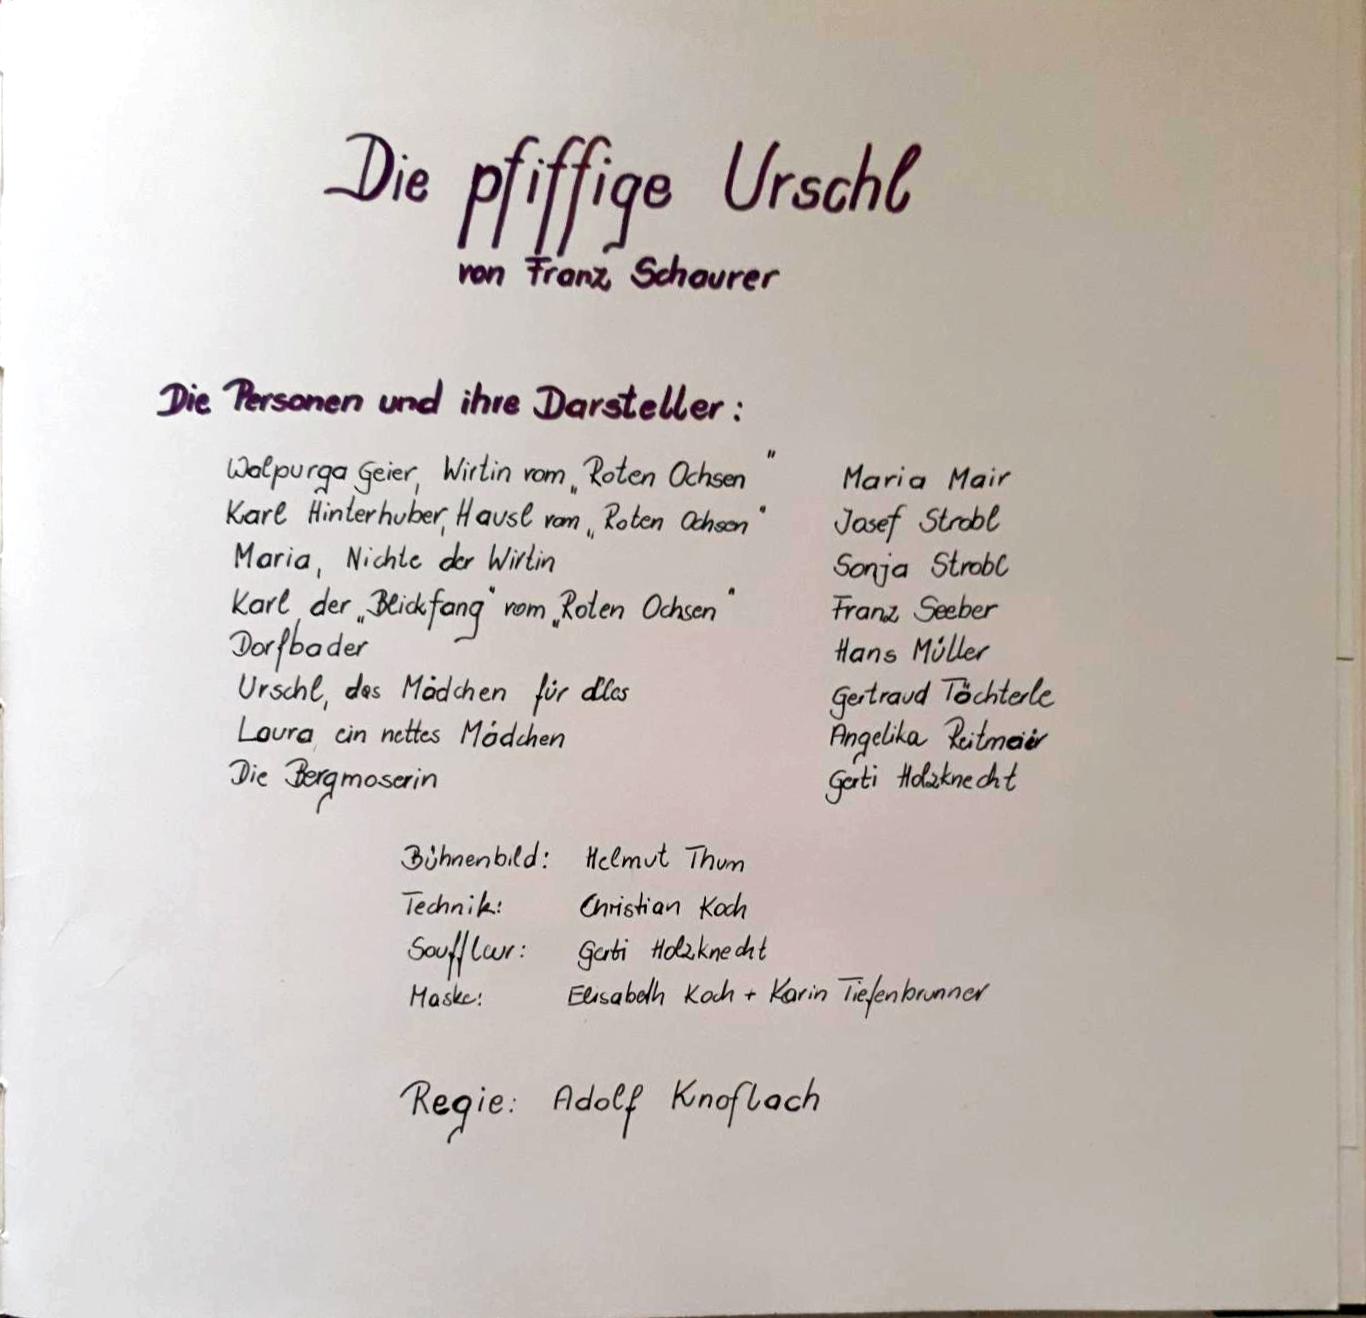 Die pfiffige Urschl
von Franz Schaurer
Die Personen und ihre Darsteller:
Walpurga Geier, Wirtin vom „Roten Ochsen" Maria Mair
Karl Hinterhuber, Hausl vom „Roten Ochsen" Josef Strobl
Maria, Nichte der Wirtin Sonja Strobl
Karl, der „Blickfang" vom „Roten Ochsen" Franz Seeber
Dorfbader Hans Müller
Urschl, das Mädchen für alles Gertraud Töchterle
Laura, ein nettes Mädchen Angelika Reitmair
Die Bergmoserin Gerti Holzknecht
Bühnenbild: Helmut Thum
Technik: Christian Koch
Souffleur: Gerti Holzknecht
Maske: Elisabeth Koch + Karin Tiefenbrunner
Regie: Adolf Knoflach